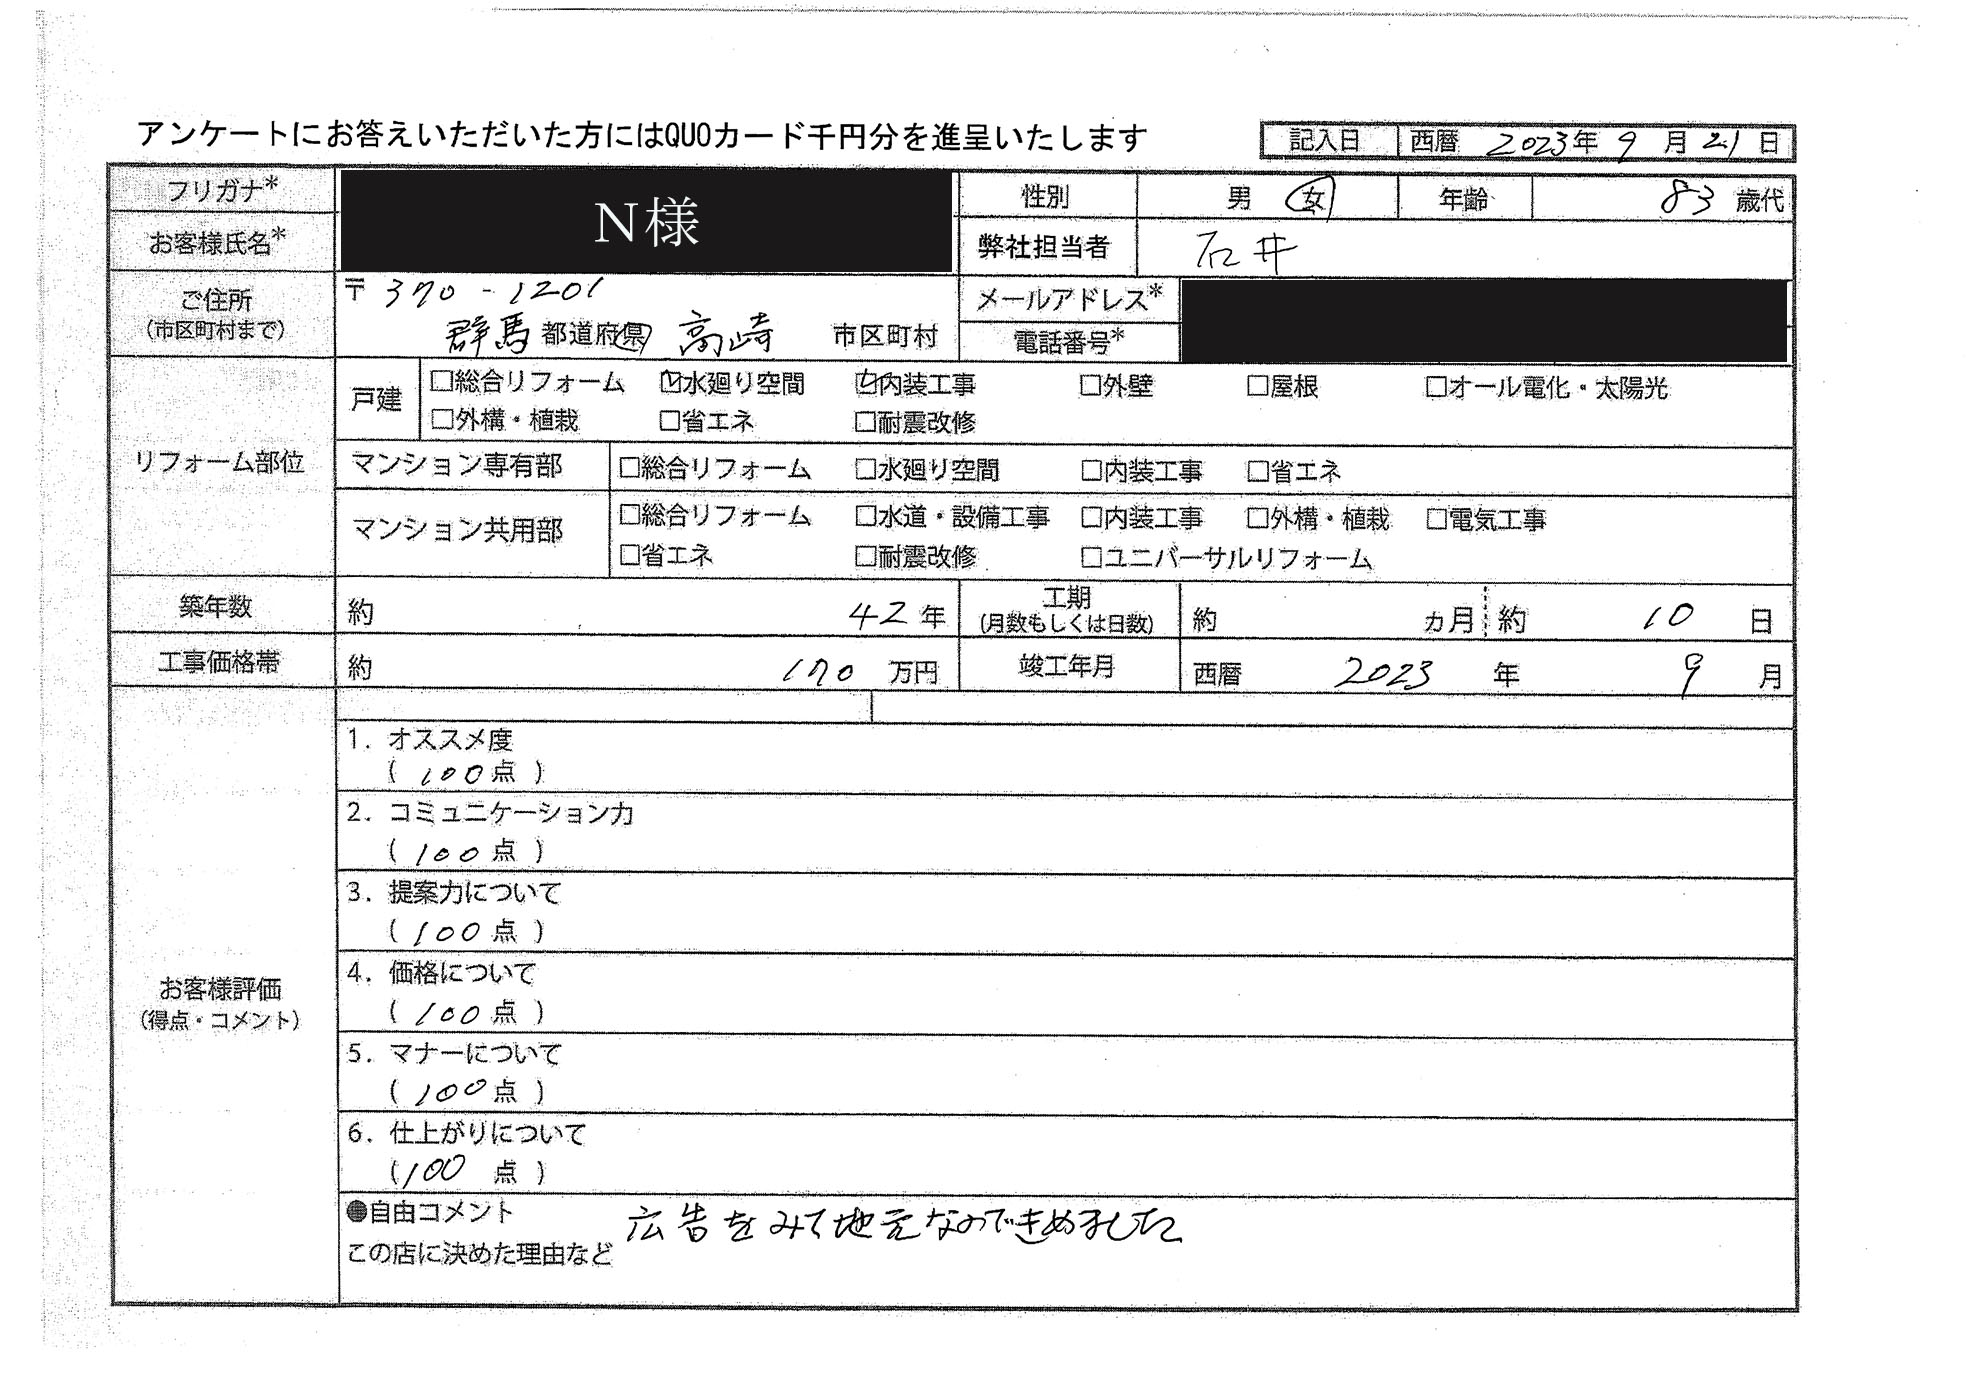 アンケートにお答えいただいた方にはQUOカード千円分を進呈いたします
記入日 西暦 2023年 9月 21日
フリガナ*
お客様氏名*
N様
性別 男 女 年齢 83歳代
弊社担当者 石井
ご住所
(市区町村まで)
〒370-1201
群馬 都道府県 高崎 市区町村
メールアドレス*
電話番号*
リフォーム部位
戸建 □総合リフォーム ☑水廻り空間 ☑内装工事 □外壁 □屋根 □オール電化・太陽光
□外構・植栽 □省エネ □耐震改修
マンション専有部 □総合リフォーム □水廻り空間 □内装工事 □省エネ
マンション共用部 □総合リフォーム □水道・設備工事 □内装工事 □外構・植栽 □電気工事
□省エネ □耐震改修 □ユニバーサルリフォーム
築年数 約 42年 工期
(月数もしくは日数) 約 カ月 約 10日
工事価格帯 約 170万円 竣工年月 西暦 2023年 9月
お客様評価
(得点・コメント)
1. オススメ度
(100点)
2. コミュニケーション力
(100点)
3. 提案力について
(100点)
4. 価格について
(100点)
5. マナーについて
(100点)
6. 仕上がりについて
(100点)
●自由コメント
この店に決めた理由など
広告をみて地元なのできめました